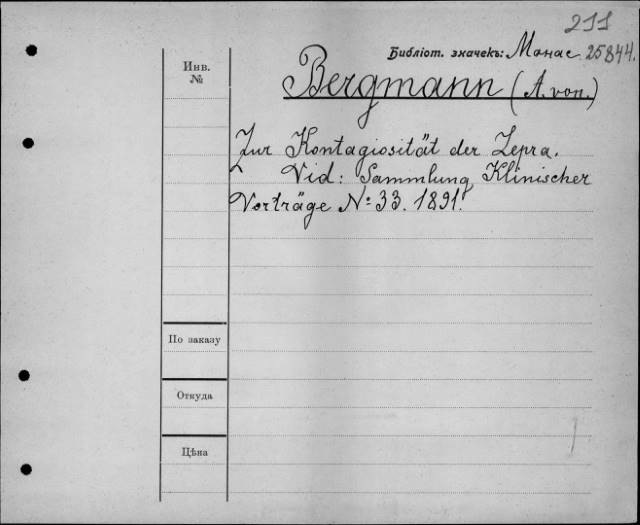 211
Библіот. значекъ: Манас 25844.
Инв.
№
Bergmann (A. von.)
Zur Kontagiosität der Lepra.
Vid: Sammlung Klinischer
Vorträge №: 33. 1891.
По заказу
Откуда
Цѣна